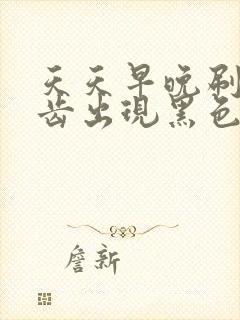 天天早晚刷
齿出现黑色
詹新